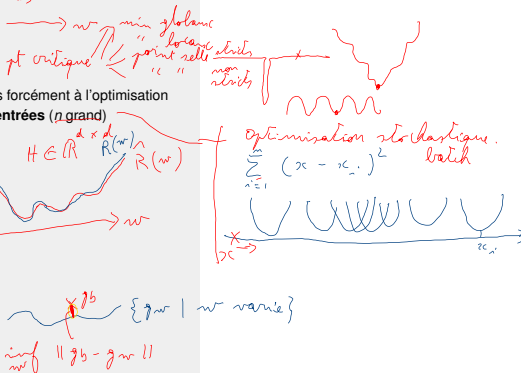 → w min globaux
" locaux
pt critique point selle stricts
" " non stricts
s forcément à l'optimisation
entrées (n grand)
H ∈ ℝ^{d × d} R(w) R̂(w)
optimisation stochastique.
batch
∑_{i=1}^{n} (x - x_i)^2
→ w
x
x_i
gb
{gw | w varie}
inf_w || gb - gw ||